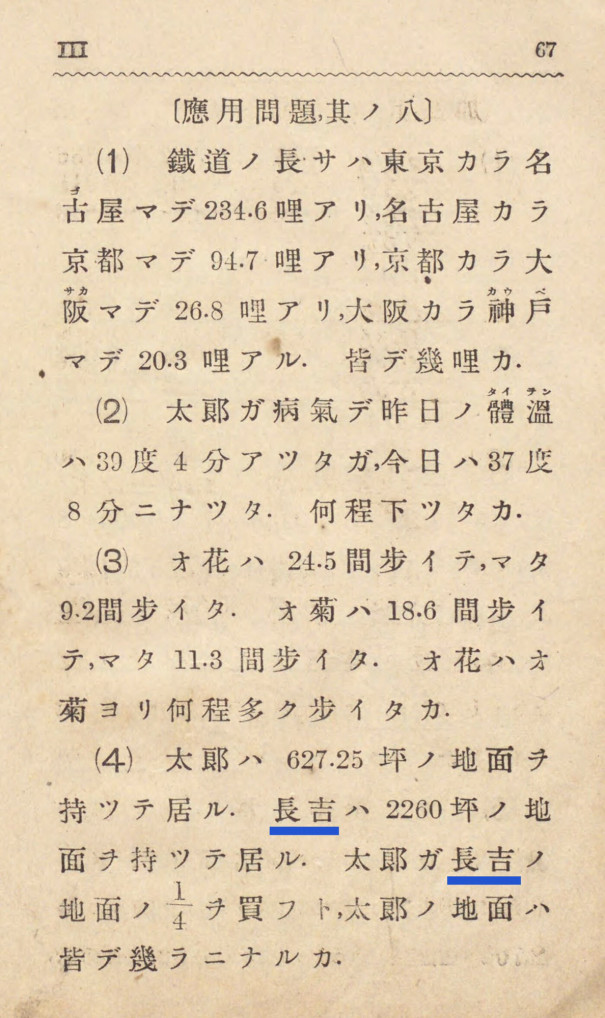 III 67
〔應用問題,其ノ八〕
(1) 鐵道ノ長サハ東京カラ名
古屋マデ 234.6 哩アリ,名古屋カラ
京都マデ 94.7 哩アリ,京都カラ大
阪マデ 26.8 哩アリ,大阪カラ神戸
マデ 20.3 哩アル. 皆デ幾哩カ.
(2) 太郎ガ病氣デ昨日ノ體溫
ハ 39 度 4 分アツタガ,今日ハ 37 度
8 分ニナツタ. 何程下ツタカ.
(3) オ花ハ 24.5 間步イテ,マタ
9.2間步イタ. オ菊ハ 18.6 間步イ
テ,マタ 11.3 間步イタ. オ花ハオ
菊ヨリ何程多ク步イタカ.
(4) 太郎ハ 627.25 坪ノ地面ヲ
持ツテ居ル. 長吉ハ 2260 坪ノ地
面ヲ持ツテ居ル. 太郎ガ長吉ノ
地面ノ 1/4 ヲ買フト,太郎ノ地面ハ
皆デ幾ラニナルカ.